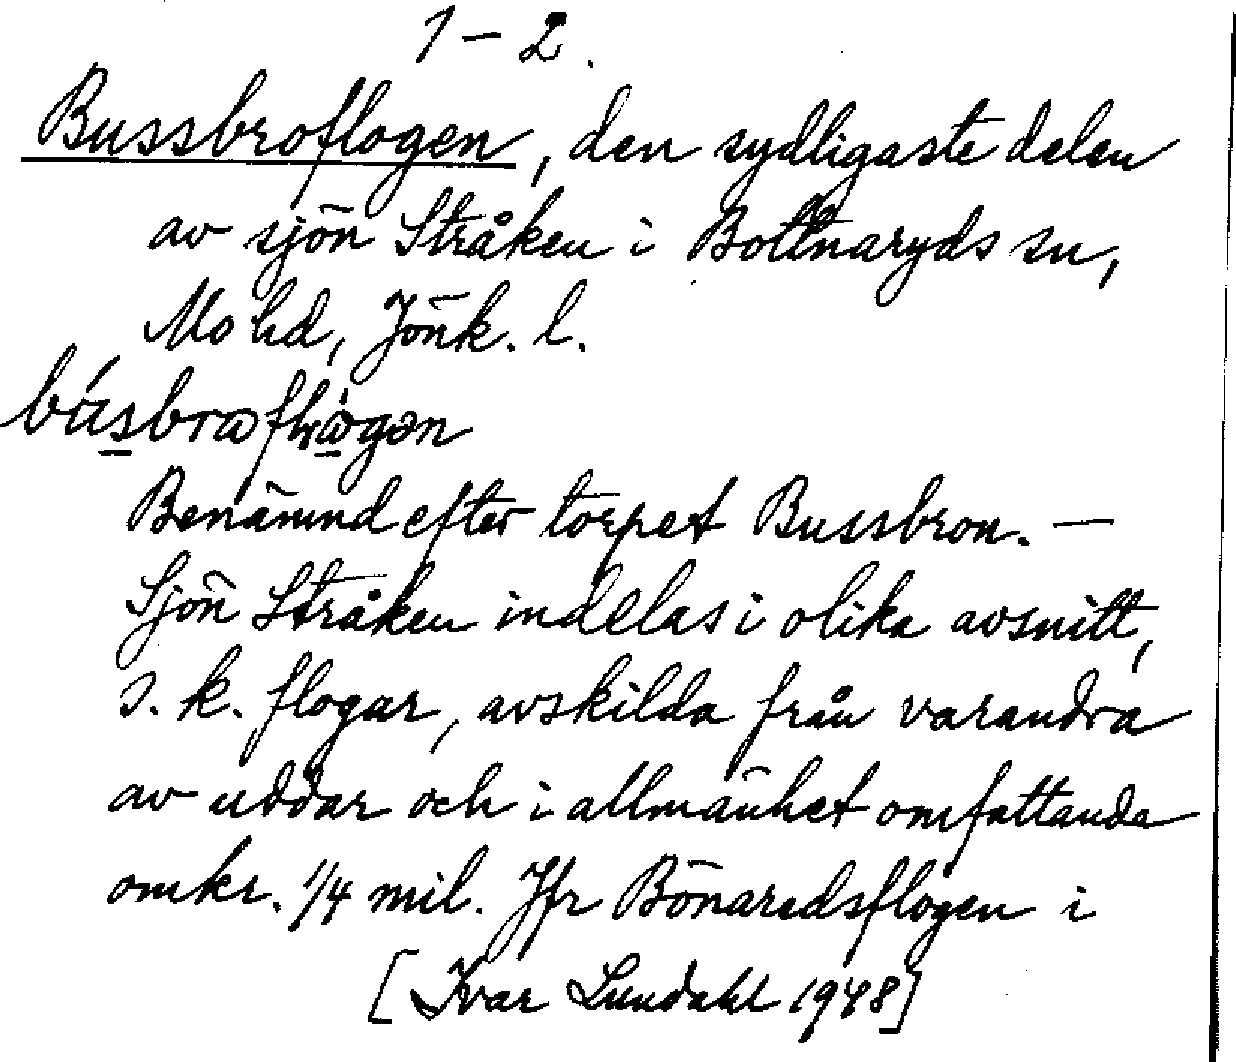 1–2.
Bussbroflogen, den sydligaste delen
av sjön Stråken i Bottnaryds sn,
Mo hd, Jönk. l.
Benämnd efter torpet Bussbron. —
Sjön Stråken indelas i olika avsnitt,
s.k. flogar, avskilda från varandra
av uddar och i allmänhet omfattande
omkr. 1/4 mil. Jfr Bönaredsflogen i
[Ivar Lundahl 1948]